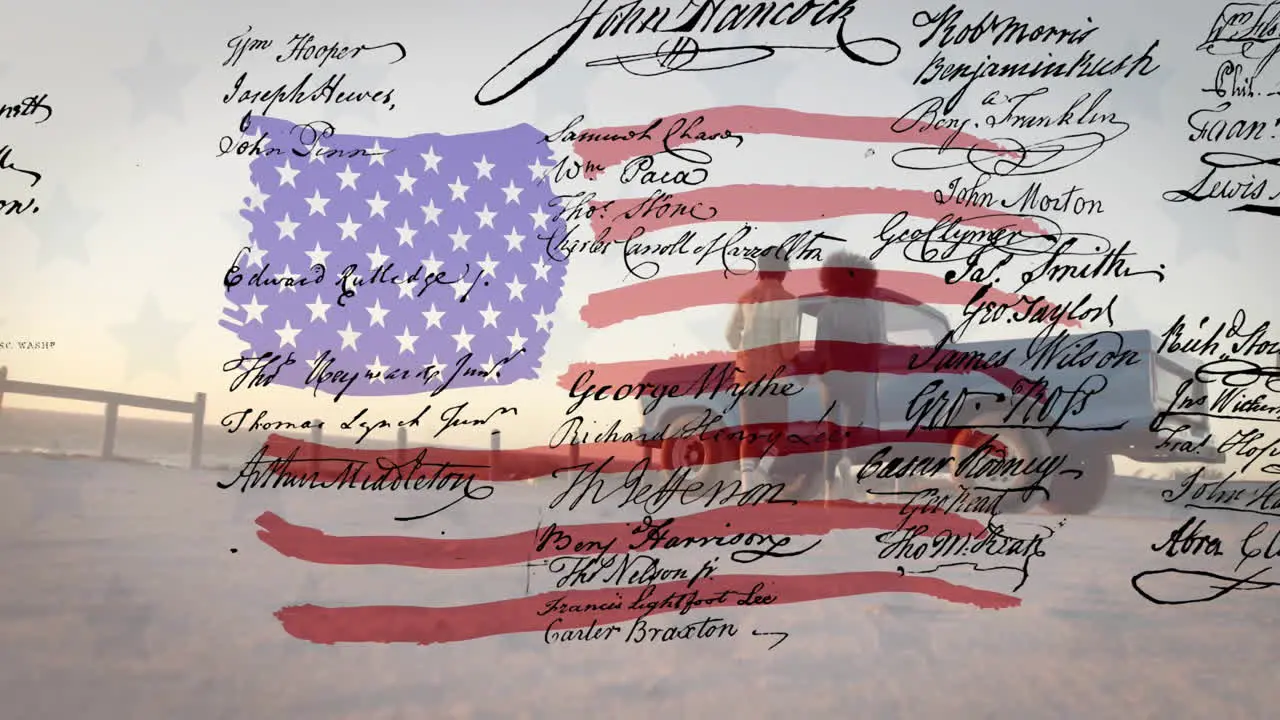 John Hancock
Wm Hooper
Joseph Hewes,
John Penn
Edward Rutledge Jr.
Thos Heyward Junr
Thomas Lynch Junr
Arthur Middleton
SC. WASHn
Samuel Chase
Wm. Paca
Thos. Stone
Charles Carroll of Carrollton
George Wythe
Richard Henry Lee
Th Jefferson
Benj Harrison
Thos Nelson jr.
Francis Lightfoot Lee
Carter Braxton
Robt Morris
Benjamin Rush
Benj. Franklin
John Morton
Geo Clymer
Jas. Smith
Geo. Taylor
James Wilson
Geo. Ross
Caesar Rodney
Geo Read
Tho M. Kean
Phil.
Lewis
Richd. Stoc
John H
Abra Cl